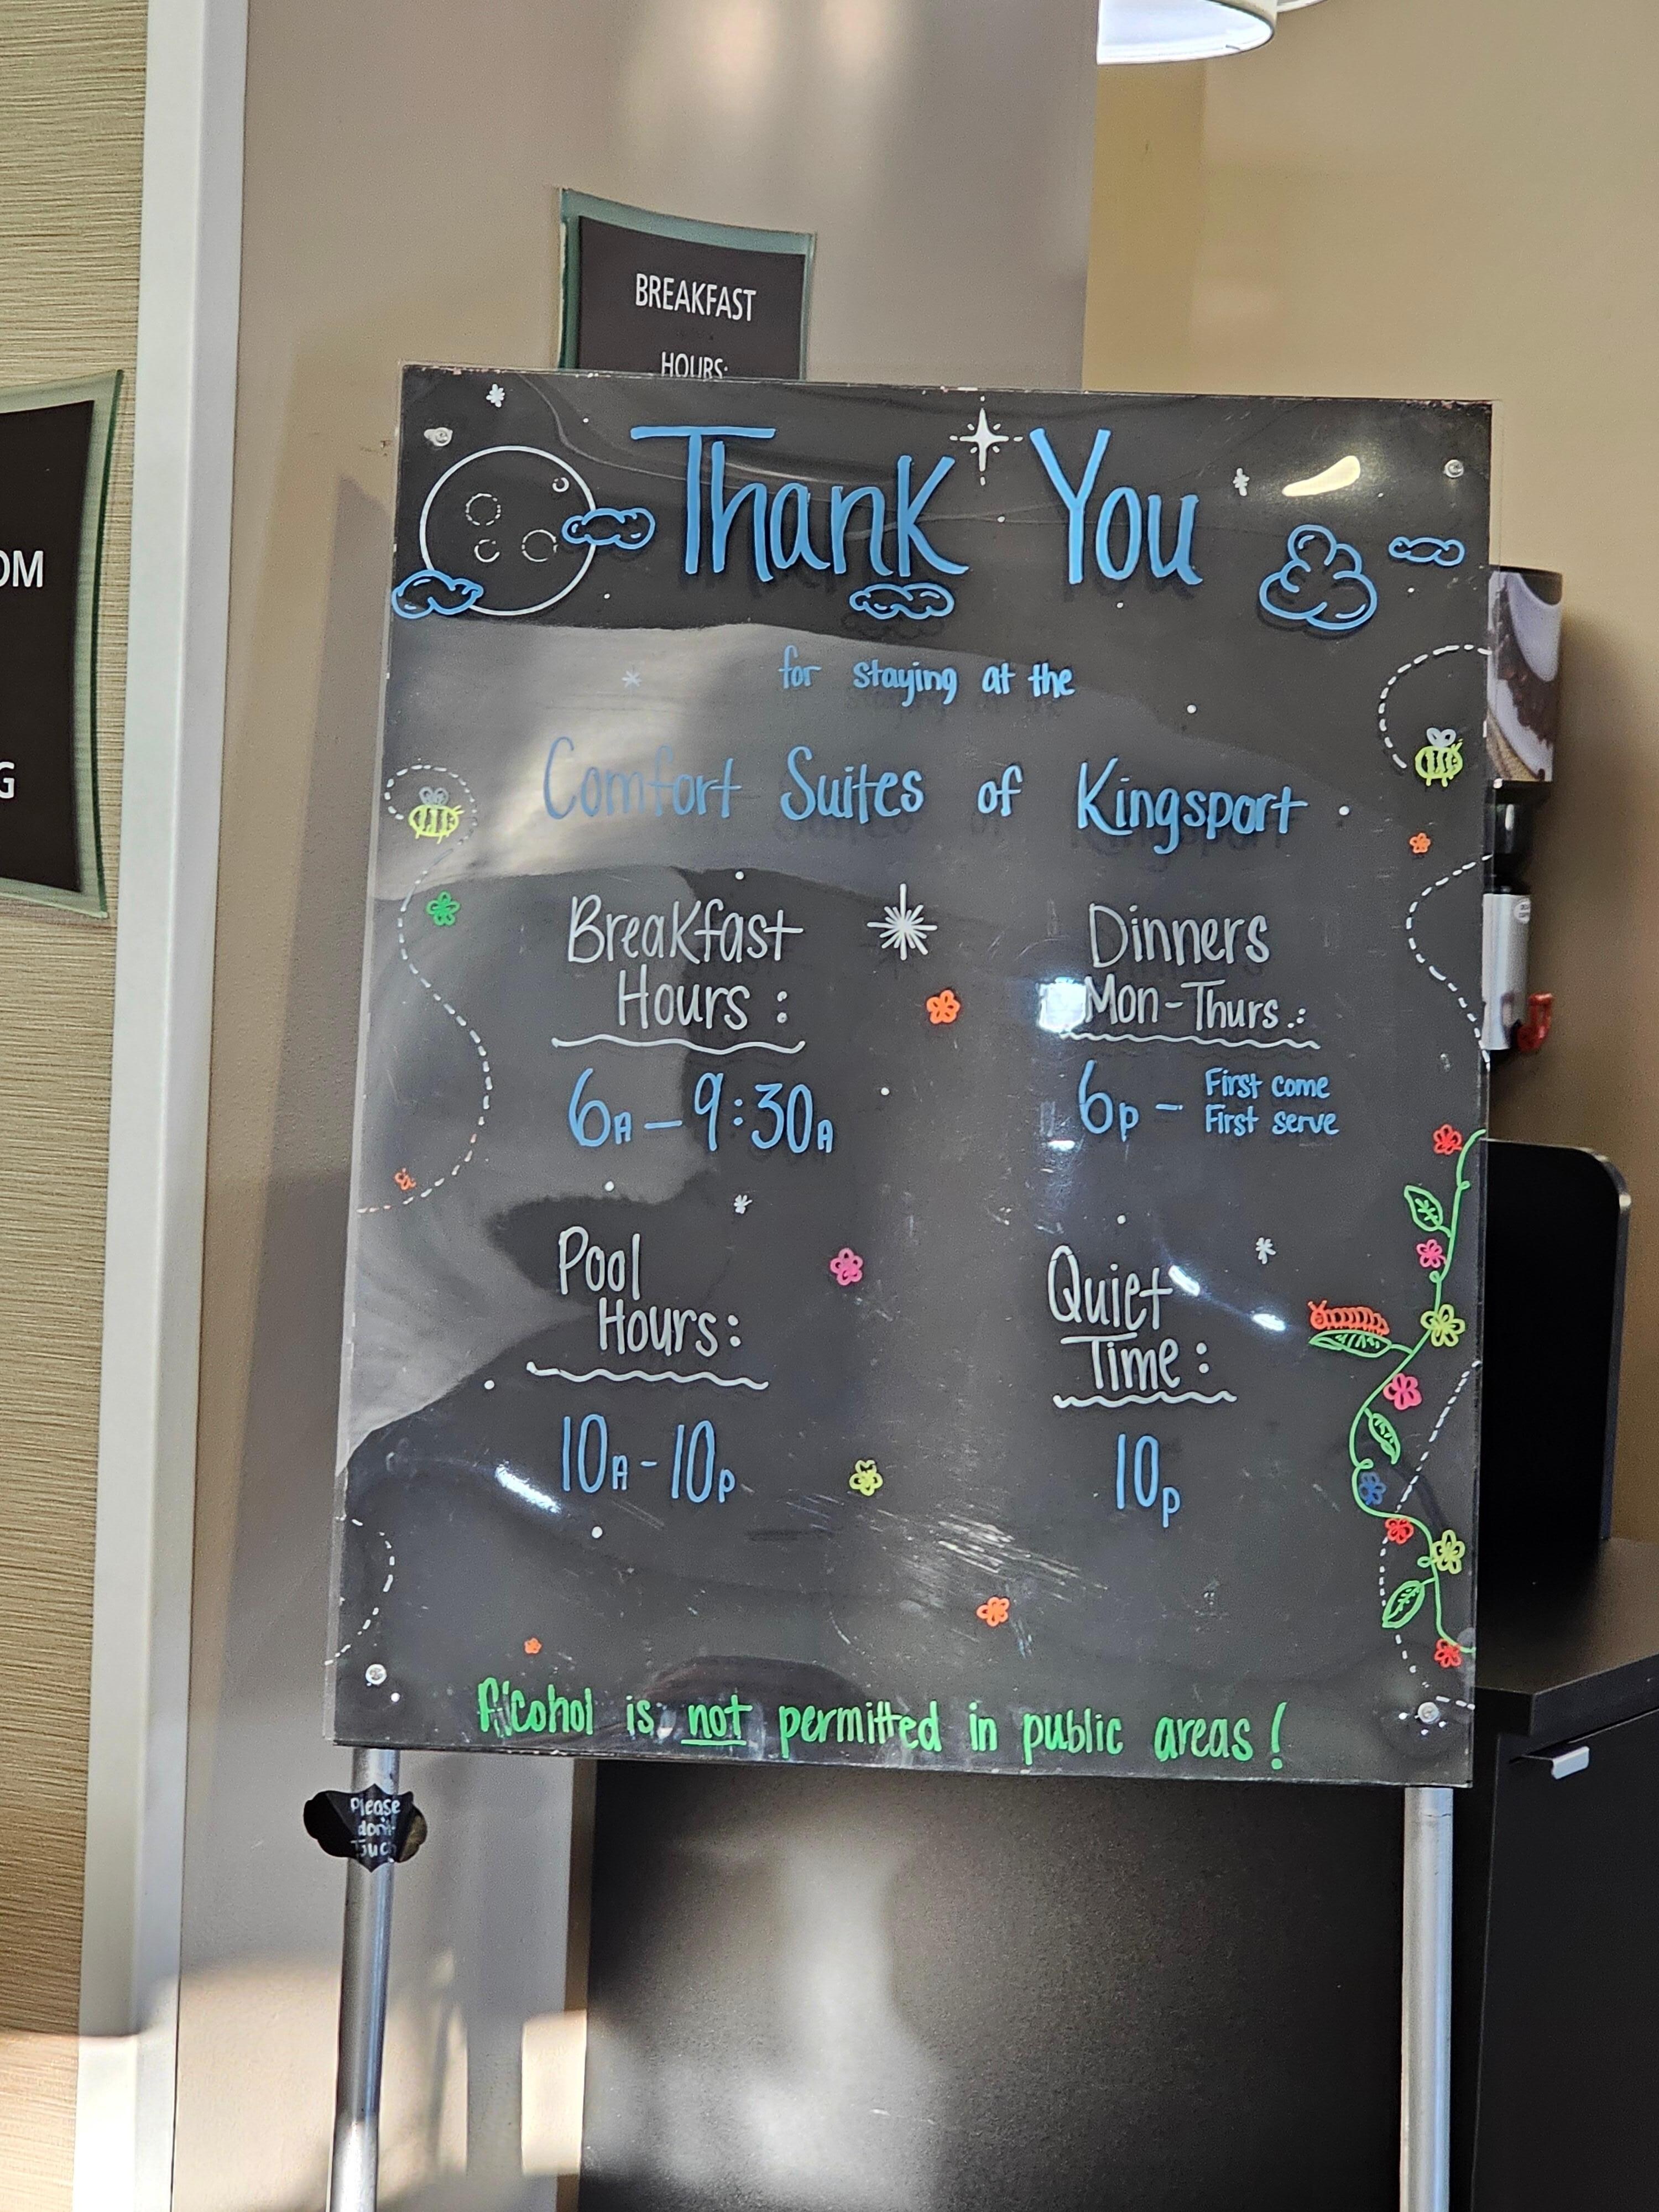 BREAKFAST
HOURS:
OM
G
Thank You
for staying at the
Comfort Suites of Kingsport
Breakfast
Hours:
6A - 9:30A
Dinners
Mon-Thurs.:
6p - First come
First serve
Pool
Hours:
10A - 10p
Quiet
Time:
10p
Alcohol is not permitted in public areas!
Please
don't
Touch